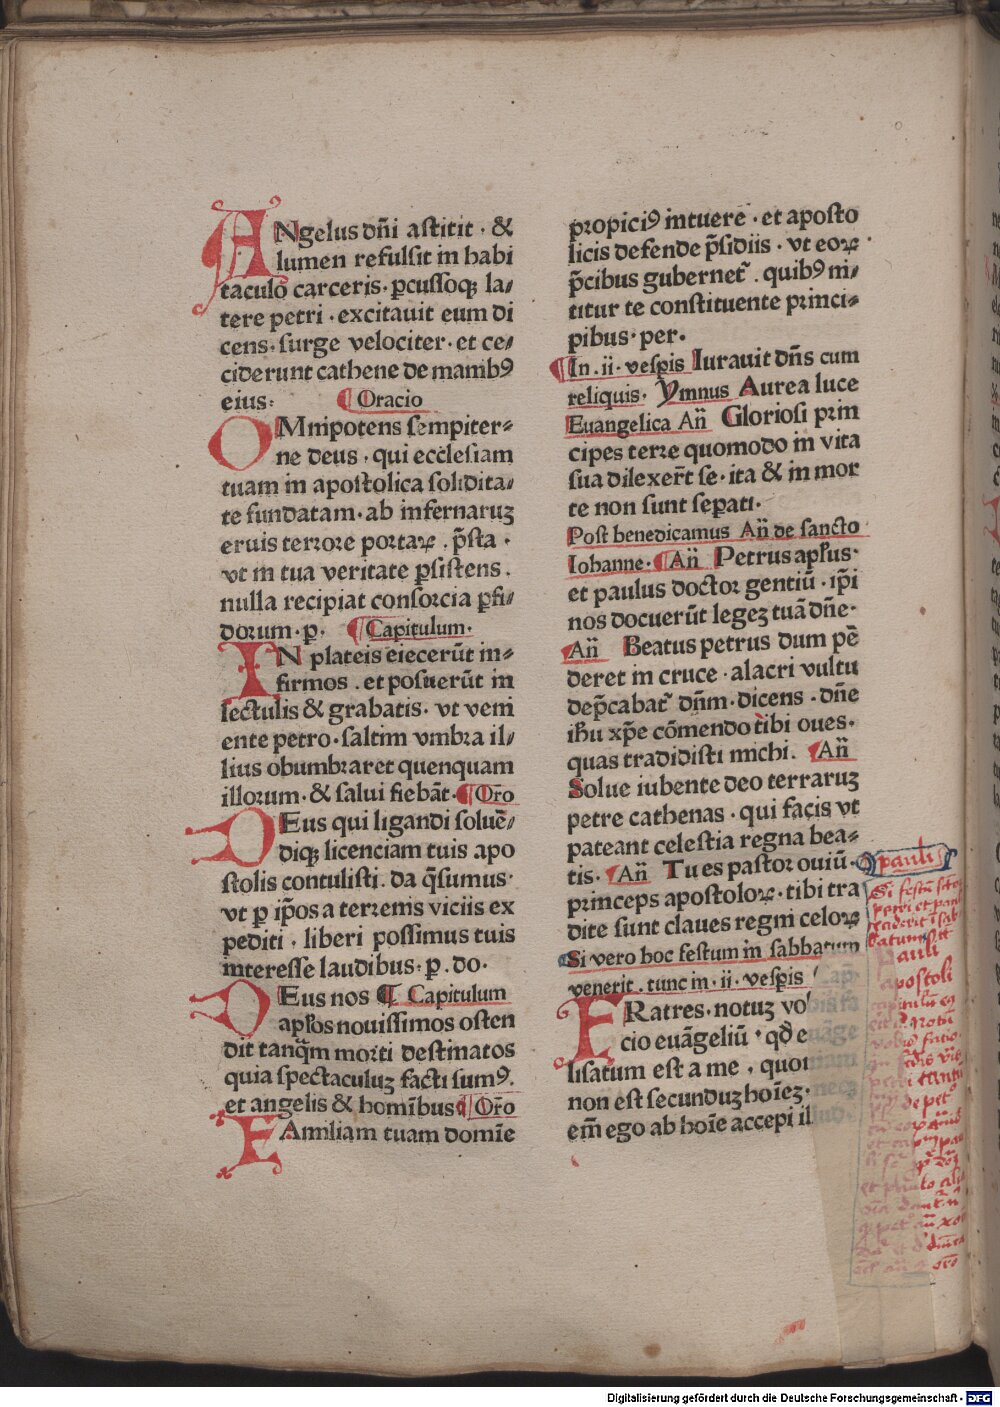 ANgelus dn̄i astitit · &
lumen refulsit in habi
taculo carceris · ꝑcussoqꝫ la⸗
tere petri · excitauit eum di
cens · surge velociter · et ce⸗
ciderunt cathene de manibꝰ
eius: ¶ Oracio
OMnipotens sempiter⸗
ne deus · qui ecclesiam
tuam in apostolica solidita⸗
te fundatam · ab infernaruꝫ
eruis terrore portaꝝ · p̄sta ·
vt in tua veritate ꝑsistens ·
nulla recipiat consorcia ꝑfi⸗
dorum · ꝑ · ¶ Capitulum ·
IN plateis eiecerūt in⸗
firmos · et posuerūt in
lectulis & grabatis · vt veni
ente petro · saltim vmbra il⸗
lius obumbraret quenquam
illorum · & salui fiebāt · ¶ Or̄o
DEus qui ligandi soluē⸗
diqꝫ licenciam tuis apo
stolis contulisti · da q̄sumus ·
vt ꝑ ip̄os a terrenis viciis ex
pediti · liberi possimus tuis
interesse laudibus · ꝑ · do ·
DEus nos ¶ Capitulum
ap̄los nouissimos osten
dit tanq̄m morti destinatos
quia spectaculuꝫ facti sumꝰ ·
et angelis & hominibus ¶ Or̄o
FAmiliam tuam domīe
propiciꝰ intuere · et aposto
licis defende p̄sidiis · vt eoꝝ ·
p̄cibus gubernet̄ · quibꝰ ni⸗
titur te constituente princi⸗
pibus · per ·
¶ In · ii · vesꝑis Iurauit dn̄s cum
reliquis · Ymnus Aurea luce
Euangelica An̄ Gloriosi prin
cipes terre quomodo in vita
sua dilexer̄t se · ita & in mor
te non sunt seꝑati ·
Post benedicamus An̄ de sancto
Iohanne · ¶ An̄ Petrus ap̄lus ·
et paulus doctor gentiū · ip̄i
nos docuerūt legeꝫ tuā dn̄e ·
¶ An̄ Beatus petrus dum pē
deret in cruce · alacri vultu
dep̄cabat̄ dn̄m · dicens · dn̄e
ih̄u xp̄e cōmendo tibi oues ·
quas tradidisti michi · ¶ An̄
Solue iubente deo terraruꝫ
petre cathenas · qui facis vt
pateant celestia regna bea⸗
tis · ¶ An̄ Tu es pastor ouiū ·
princeps apostoloꝝ · tibi tra
dite sunt claues regni celoꝝ
Si vero hoc festum in sabbatum
venerit · tunc in · ii · vesꝑis
FRatres · notuꝫ vo
cio euāgeliū · qd̄ e
lisatum est a me · quon
non est secunduꝫ hoīeꝫ ·
em̄ ego ab hoīe accepi il
pauli
Si festū
petri et pauli
apostoli
Digitalisierung gefördert durch die Deutsche Forschungsgemeinschaft - DFG